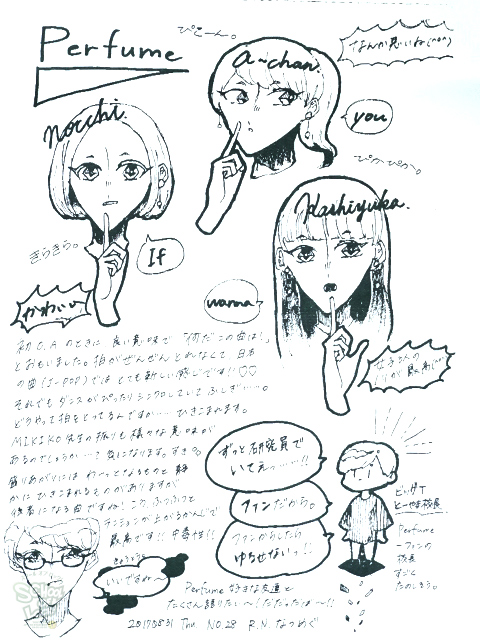 Perfume
ぴこーん。
なんか良いね(^o^)
a~chan.
nocchi.
you
ぴかぴか。
Kashiyuka.
きらきら。
If
かわいい
wanna
初O.Aのときに 良い意味で「何だこの曲は!」
とおもいました。拍がぜんぜん とれなくて、日本
の曲(J-POP)では とても新しい感じです!!♡♡
それでも ダンスがぴったりシンクロしていて ふしぎ…。
どうやって拍をとってるんですか… ひきこまれます。
MIKIKO先生の振りも様々な意味が
あるのでしょうか…て気になります。すき
盛りあがりには わーっとなるものと 静
かにひきこまれるものがありますが
後者になる曲ですかね!
テンションが上がるかんじで
最高です!! 中毒性!!
いいですね〜
ずっと研究員で
いてえっ……!!
ファンだから。
ファンからしたら
ゆるせないっ!!
ビッグT
とーやま校長
Perfume
ファンの
校長
すごく
たのしそう。
Perfume好きな友達と
たくさん語りたい〜!だだったぱー!!
2017.08.31 Thu. NO.28 R.N. なつめぐ